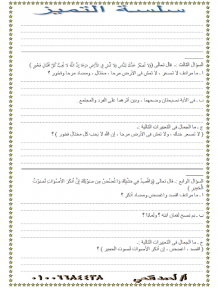 سلسلة التميز
السؤال الثالث : قال تعالى (ولا تصعر خدك للناس ولا تمش في الأرض مرحا إن الله لا يحب كل مختال فخور )
أ - ما مرادف لا تصعر ، لا تمش في الأرض مرحا ، مختال ، ومضاد مرحا وفخور ؟
ب - في الآية نصيحتان وضحهما ، وبين أثرهما على الفرد والمجتمع.
ج - ما الجمال في التعبيرات التالية :
( لا تصعر خدك ، ولا تمش في الأرض مرحا ، إن الله لا يحب كل مختال فخور ) ؟
السؤال الرابع : قال تعالى (واقصد في مشيك واغضض من صوتك إن أنكر الأصوات لصوت
الحمير )
أ - ما مرادف اقصد واغضض ومضاد أنكر ؟
ب - بم نصح لقمان ابنه ؟ ولماذا ؟
ج - ما الجمال في التعبيرات التالية :
( اقصد ، اغضض ، إن أنكر الأصوات لصوت الحمير ) ؟
٠١٠٠٦٦٨٤٤٣٨